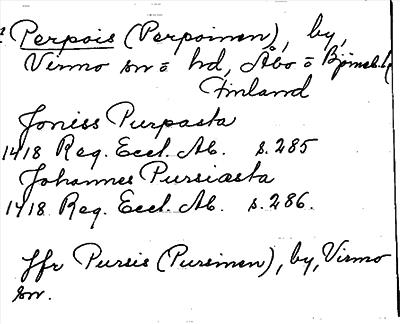 Perpois (Perpoinen), by,
Virmo sn o hd, Åbo o Björneb. l
Finland
Joniss Purpasta
1418 Reg. Eccl. Ab. s. 285
Johannes Pursiasta
1418 Reg. Eccl. Ab. s. 286.
Jfr Pursis (Pursinen), by, Virmo
sn.